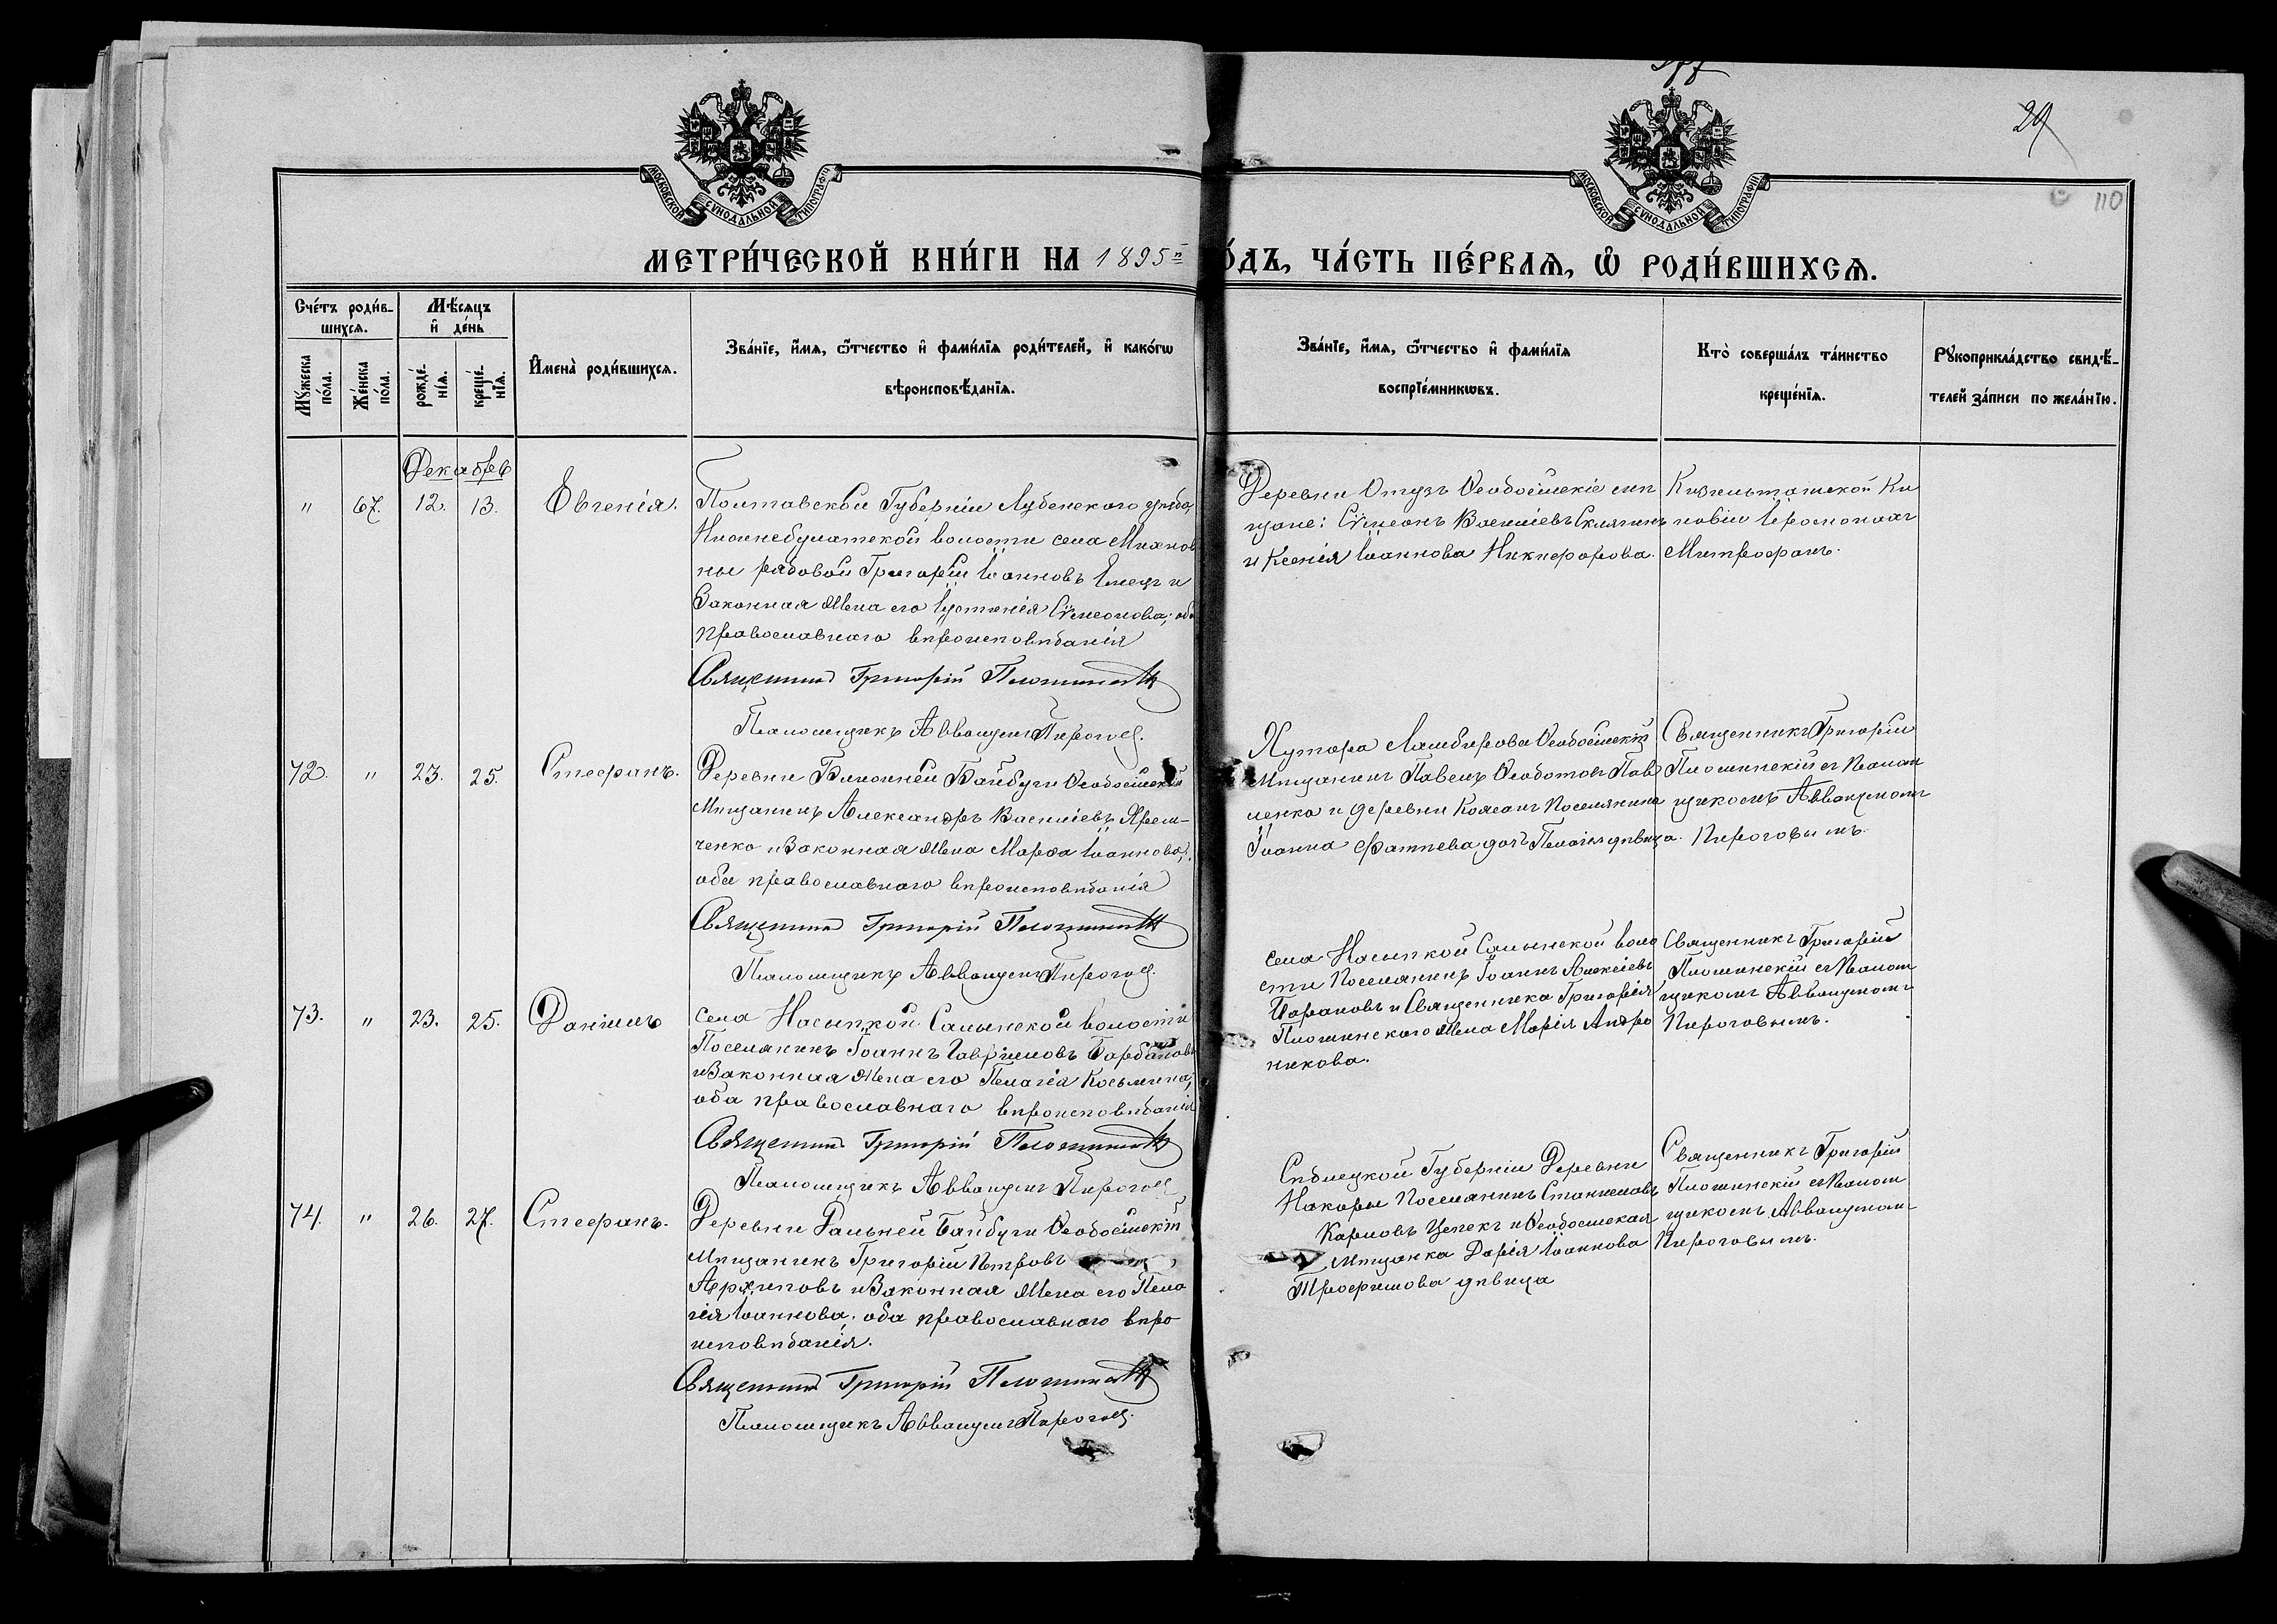 29
110
МОСКОВСКОЙ СѴНОДАЛЬНОЙ ТИПОГРАФІИ
МОСКОВСКОЙ СѴНОДАЛЬНОЙ ТИПОГРАФІИ
МЕТРИ́ЧЕСКОЙ КНИ́ГИ НА 1895 го́ДЪ, ЧА́СТЬ ПЕ́РВАѦ, Ѽ РОДИ́ВШИХСѦ.
Сче́тъ роди́в-
шихсѧ.
Мѣ́сѧцъ
и҆ де́нь
Мꙋ́жеска по́ла.
Же́нска по́ла.
рожде́-
нїѧ.
креще́-
нїѧ.
И҆мена̀ роди́вшихсѧ.
Зва́нїе, и҆́мѧ, ѻ҆́тчество и҆ фами́лїѧ роди́телей, и҆ како́гѡ
вѣроисповѣ́данїѧ.
Зва́нїе, и҆́мѧ, ѻ҆́тчество и҆ фами́лїѧ
воспрїе́мникѡвъ.
Кто̀ соверша́лъ та́инство
креще́нїѧ.
Рꙋкоприкла́дство свидѣ́-
телей за́писи по жела́нїю.
Декабрь
" 67. 12. 13. Евгенія.
Полтавской Губерніи Лубенского уѣзда
волости села
ны рядовой Григорій Іоанновъ Емецъ и
Законная Жена его Іустинія Сѵмеонова; оба
православнаго вѣроисповѣданія
Священникъ Григорій Плошинскій
Псаломщикъ Аввакумъ Пироговъ.
Деревни Отузъ Ѳеодосійскіе мѣ
щане: Сѵмеонъ Василіевъ Склярикъ
и Ксенія Іоаннова Никифорова.
Кизильташской Ки
новіи Іеромонахъ
Митрофанъ.
72. " 23. 25. Стефанъ.
Деревни Ближней Байбуги Ѳеодосійскій
Мѣщанинъ Александръ Василіевъ Ярем-
ченко и Законная Жена Марѳа Іоаннова;
оба православнаго вѣроисповѣданія
Священникъ Григорій Плошинскій
Псаломщикъ Аввакумъ Пироговъ.
Хутора Ламбирова Ѳеодосійскій
Мѣщанинъ Павелъ Ѳеодотовъ Пав
ленко и деревни Поселянина
Іоанна Фатѣева дочь Пелагія дѣвица.
Священникъ Григорій
Плошинскій съ Псалом
щикомъ Аввакумомъ
Пироговымъ.
73. " 23. 25. Даніилъ
Села Насыпкой Салынской волости
Поселянинъ Іоаннъ Гавриловъ Барбановъ
и Законная Жена его Пелагія Косьмина;
оба православнаго вѣроисповѣданія
Священникъ Григорій Плошинскій
Псаломщикъ Аввакумъ Пироговъ
Села Насыпкой Салынской воло
сти Поселянинъ Іоаннъ Алексіевъ
и Священника Григорія
Плошинского Жена Марія Андро
никова.
Священникъ Григорій
Плошинскій съ Псалом
щикомъ Аввакумомъ
Пироговымъ.
74. " 26. 27. Стефанъ.
Деревни Дальней Байбуги Ѳеодосійскій
Мѣщанинъ Григорій Петровъ
Архиповъ и Законная Жена его Пела
гія Іоаннова; оба православнаго вѣро
исповѣданія.
Священникъ Григорій Плошинскій
Псаломщикъ Аввакумъ Пироговъ.
Сѣдлецкой Губерніи Деревни
Накоры Поселянинъ Станиславъ
Карловъ Цепекъ и Ѳеодосійская
Мѣщанка Дарія Іоаннова
Трофимова дѣвица
Священникъ Григорій
Плошинскій съ Псалом
щикомъ Аввакумомъ
Пироговымъ.